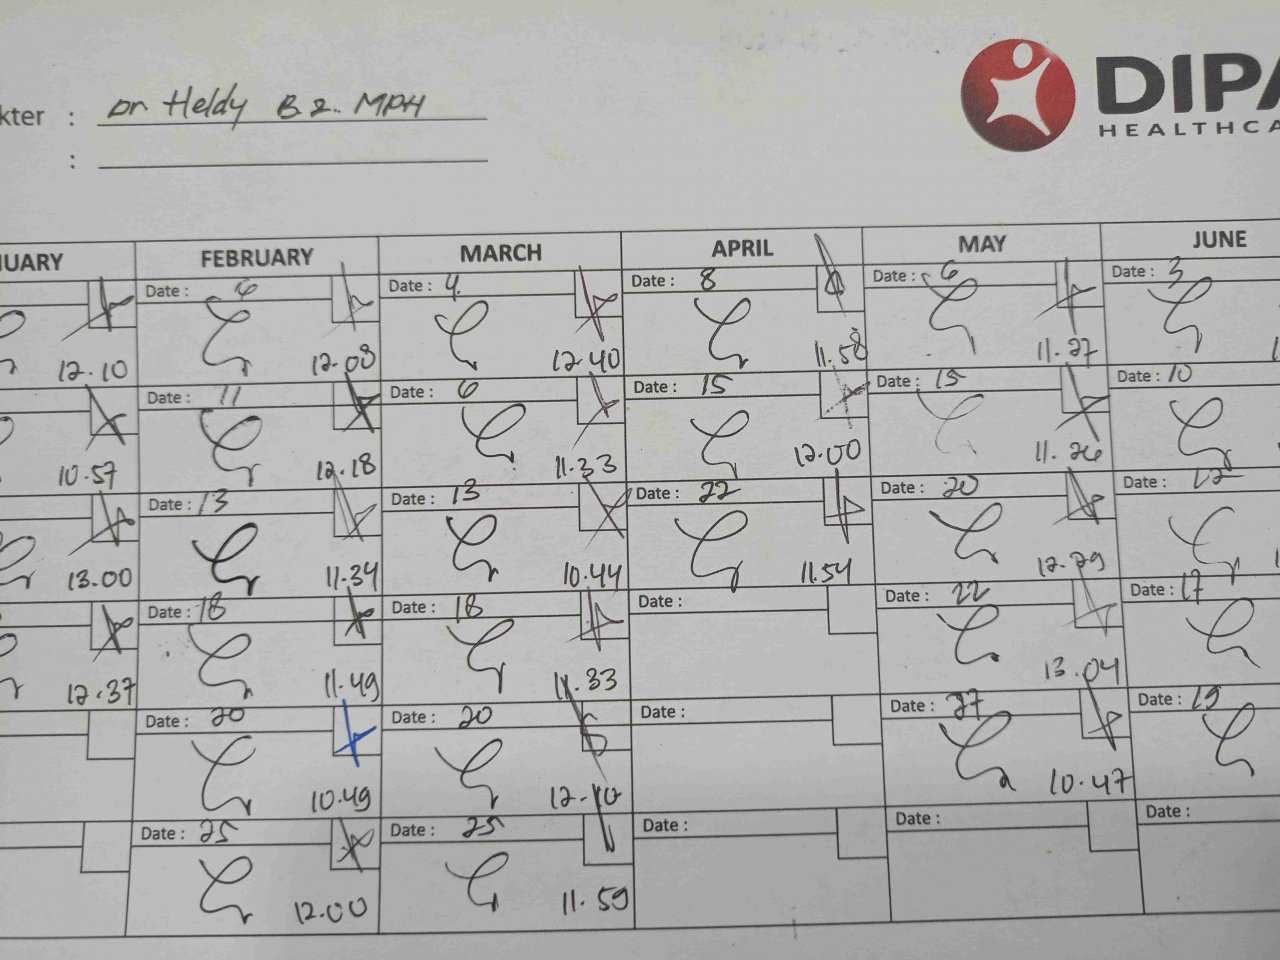 kter : Dr. Heldy B.2. MPH
:
DIPA
HEALTHCA
UARY FEBRUARY MARCH APRIL MAY JUNE
Date : 6 Date : 4 Date : 8 Date : 6 Date : 3
12.10 12.08 12.40 11.58 11.27
Date : 11 Date : 6 Date : 15 Date : 15 Date : 10
10.57 12.18 11.33 12.00 11.26
Date : 13 Date : 13 Date : 22 Date : 20 Date : 12
13.00 11.34 10.44 11.54 12.29
Date : 18 Date : 18 Date : Date : 22 Date : 17
12.37 11.49 11.33 13.04
Date : 20 Date : 20 Date : Date : 27 Date : 19
10.49 12.10 10.47
Date : 25 Date : 25 Date : Date : Date :
12.00 11.59